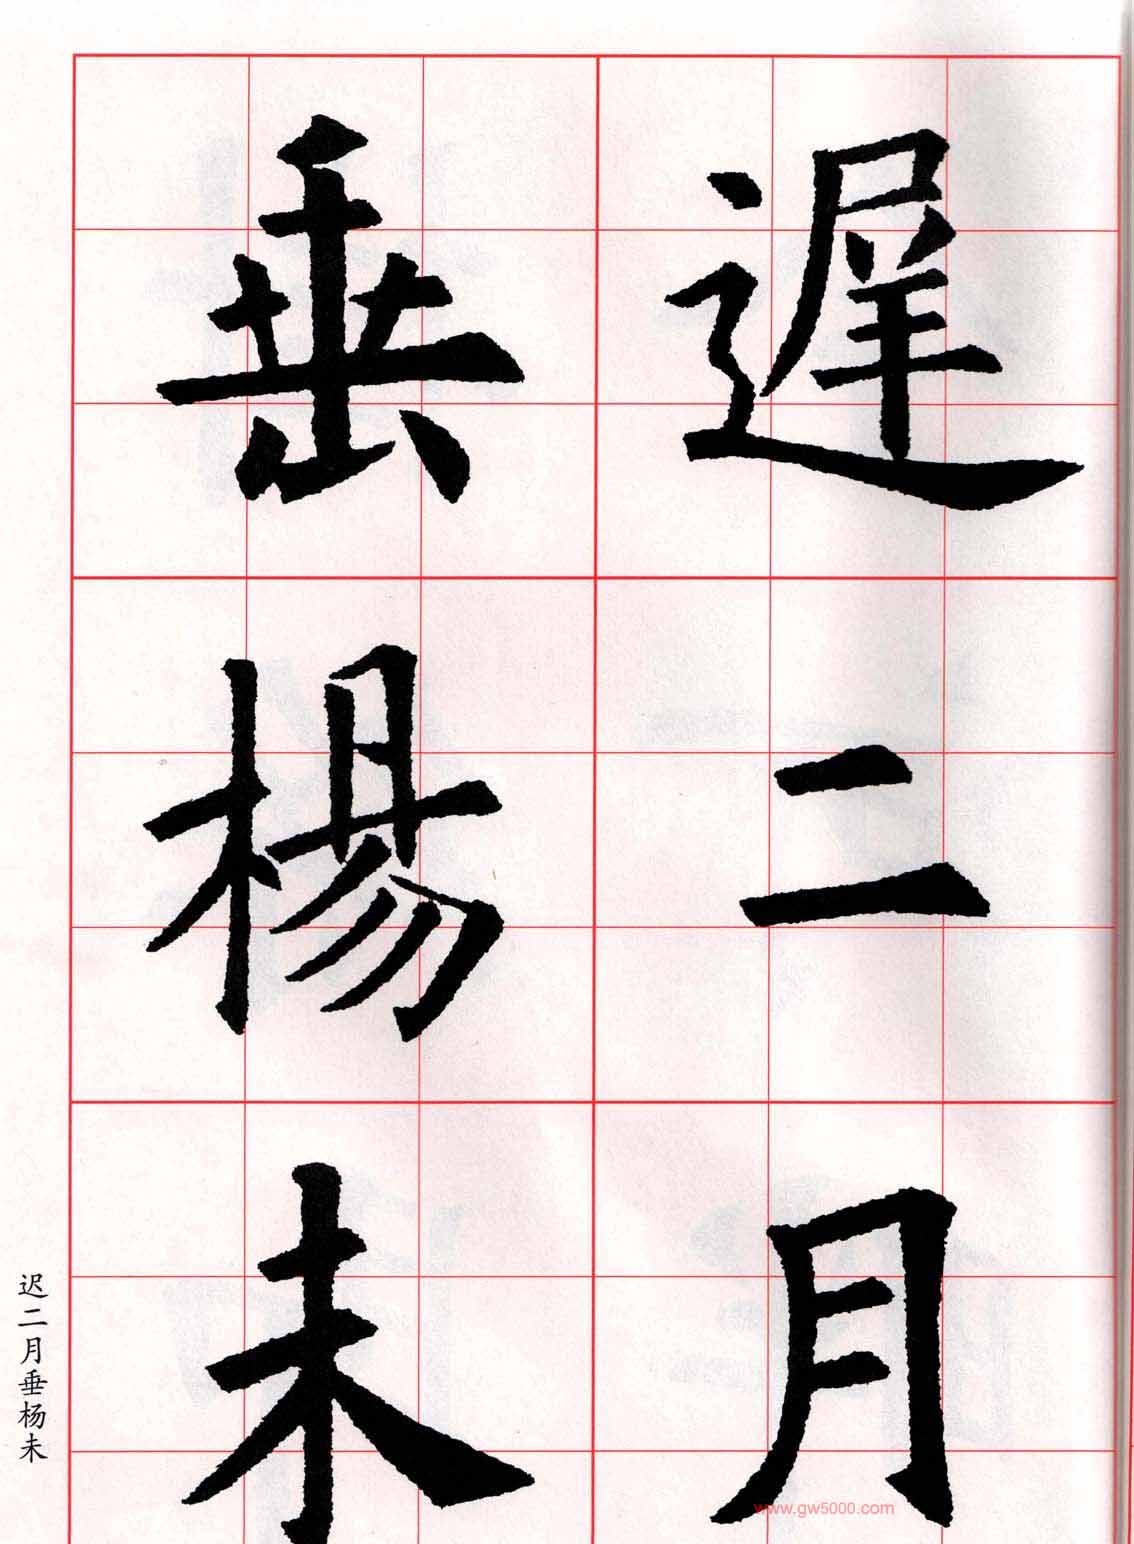 遲二月
垂楊未
迟二月垂杨未
www.gw5000.com